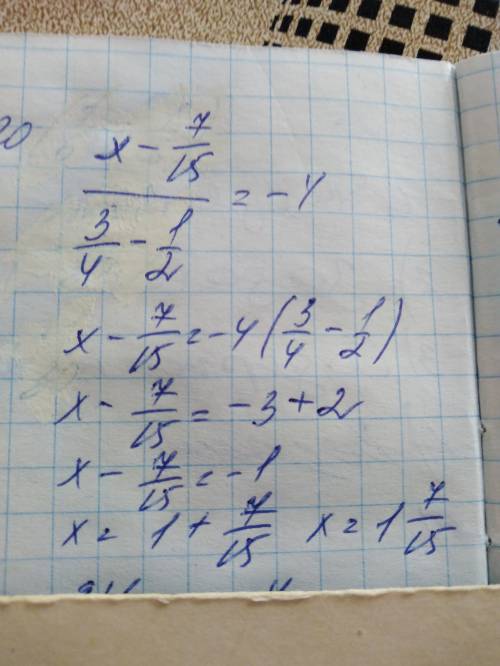 20
(x - 7/15) / (3/4 - 1/2) = -4
x - 7/15 = -4(3/4 - 1/2)
x - 7/15 = -3 + 2
x - 7/15 = -1
x = 1 + 7/15 x = 1 7/15